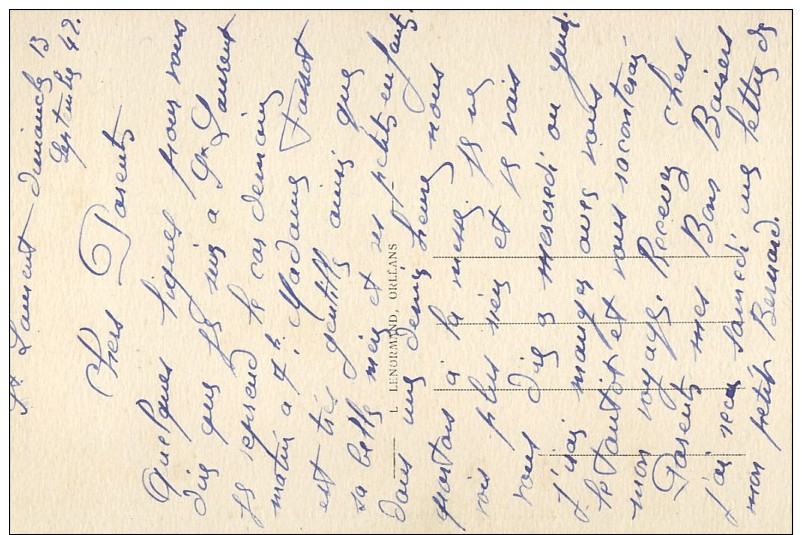 St Laurent dimanche 13
Septembre 42.
Chers Parents
Quelques lignes pour vous
dire que je suis a St Laurent
je reprend le car demain
matin a 7h. Madame Tassot
est très gentille ainsi que
sa belle mère et ses petits enfants.
dans une demie heure nous
partons à la messe. je ne
vois plus rien et je vais
vous dire a mercredi ou jeudi.
J'irai manger avec vous
le tantôt et vous raconterai
mon voyage. Recevez chers
Parents mes Bons Baisers
j'ai reçu samedi une lettre de
mon petit Bernard.
L. LENORMAND, ORLÉANS